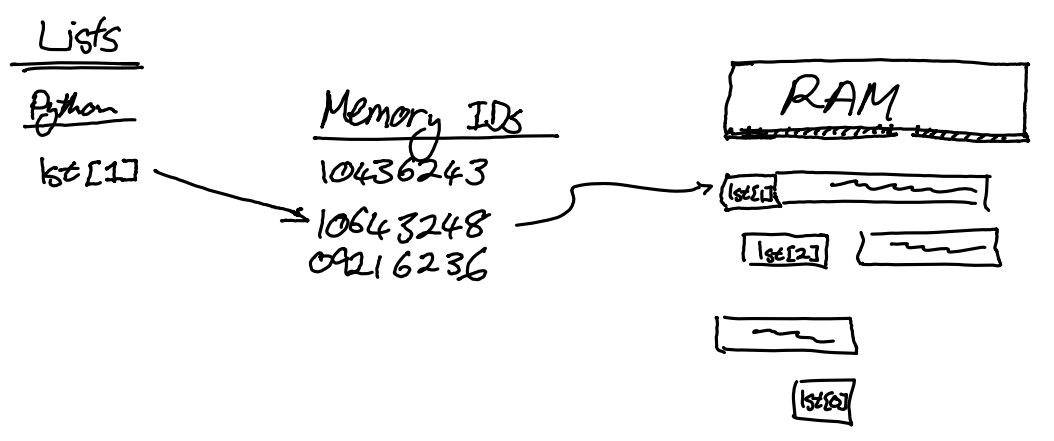 Lists
Python
lst[1]
Memory IDs
10436243
10643248
09216236
RAM
lst[1]
lst[2]
lst[0]